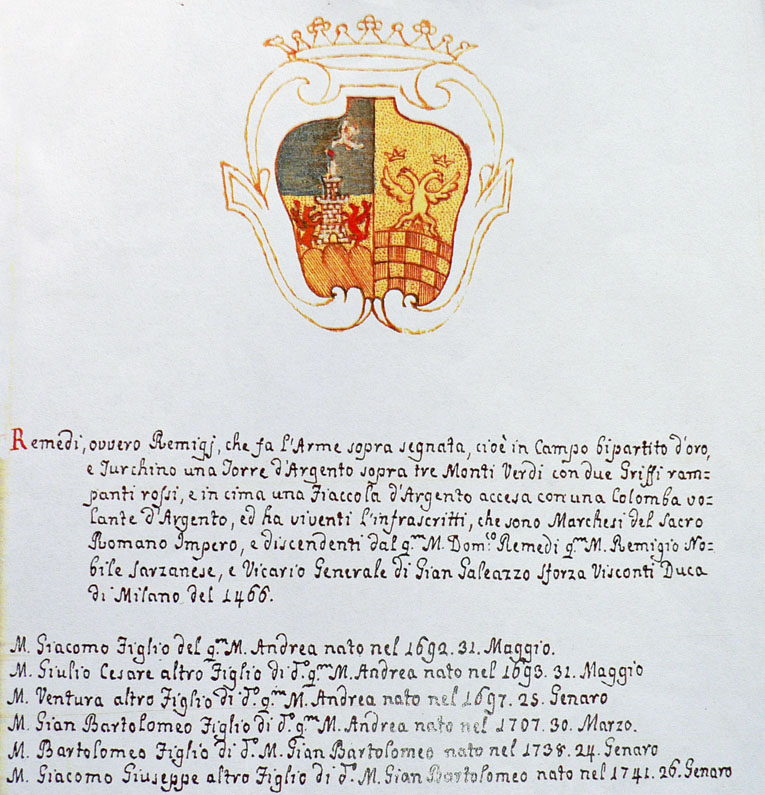 Remedi, ovvero Remigj, che fa l'Arme sopra segnata, cioè in Campo bipartito d'oro,
e Turchino una Torre d'Argento sopra tre Monti Verdi con due Griffi ram=
panti rossi, e in cima una Fiaccola d'Argento accesa con una Colomba vo=
lante d'Argento, ed ha viventi l'infrascritti, che sono Marchesi del Sacro
Romano Impero, e discendenti dal q.m M. Dom.co Remedi q.m M. Remigio No=
bile Sarzanese, e Vicario Generale di Gian Galeazzo Sforza Visconti Duca
di Milano del 1466.
M. Giacomo Figlio del q.m M. Andrea nato nel 1692. 31. Maggio.
M. Giulio Cesare altro Figlio di d.o q.m M. Andrea nato nel 1693. 31. Maggio
M. Ventura altro Figlio di d.o q.m M. Andrea nato nel 1697. 25. Genaro
M. Gian Bartolomeo Figlio di d.o q.m M. Andrea nato nel 1707. 30. Marzo.
M. Bartolomeo Figlio di d.o M. Gian Bartolomeo nato nel 1738. 24. Genaro
M. Giacomo Giuseppe altro Figlio di d.o M. Gian Bartolomeo nato nel 1741. 26. Genaro